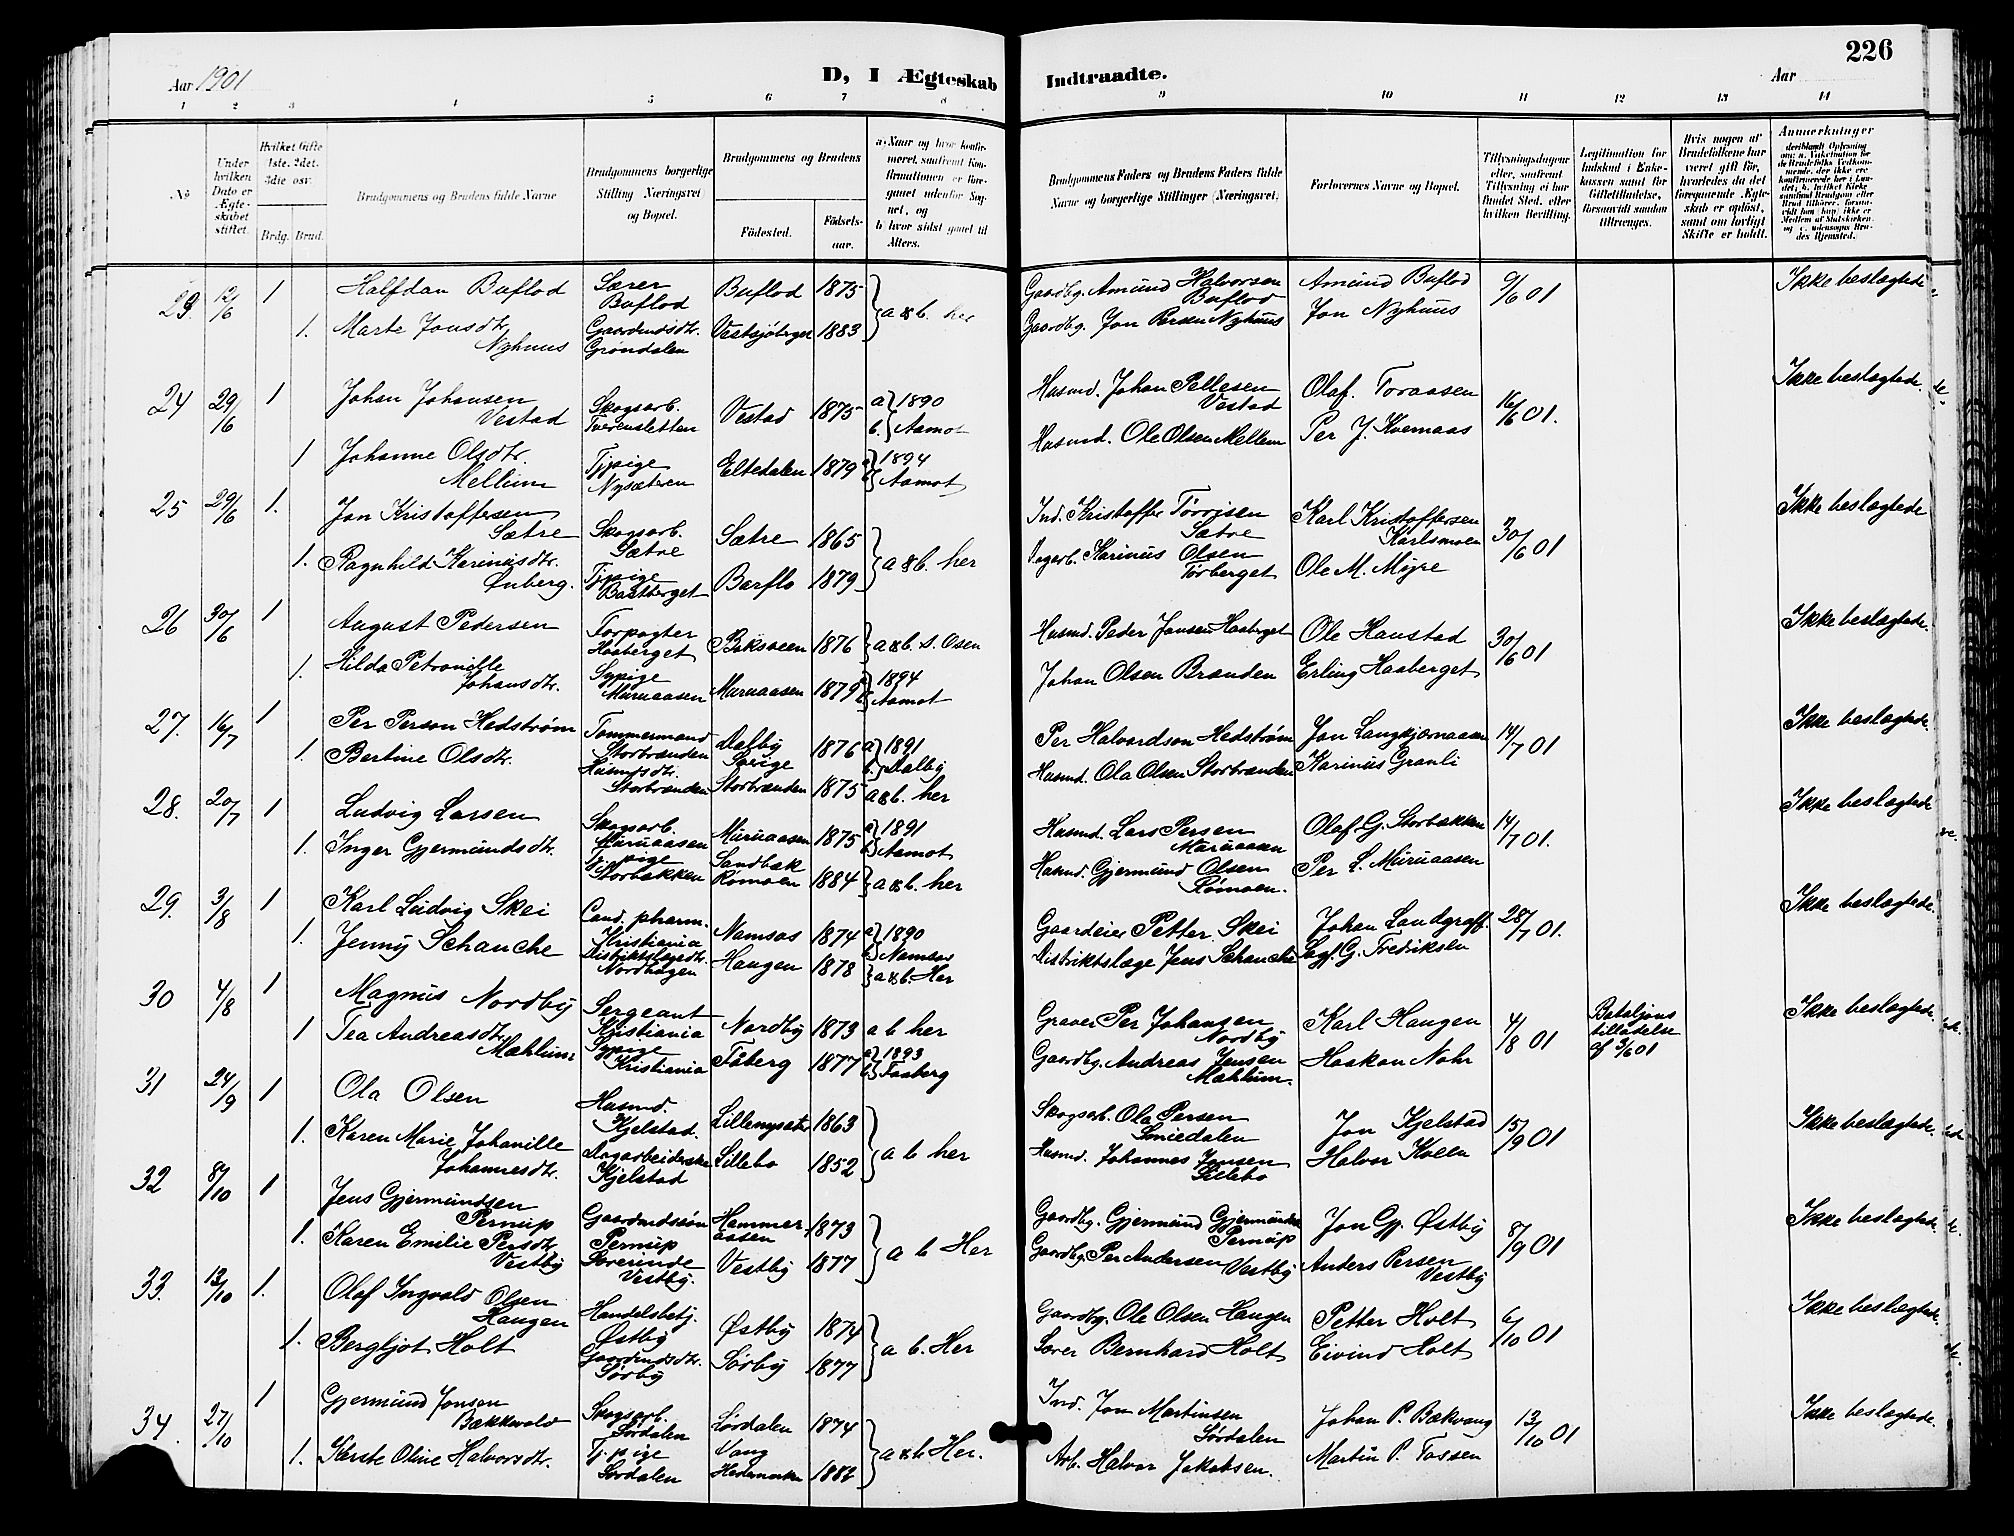 226
Aar 1901
D, I Ægteskab Indtraadte.
Aar
1 2 3 4 5 6 7 8 9 10 11 12 13 14
No
Under hvilken Dato er Ægteskabet stiftet.
Hvilket Gifte 1ste, 2det, 3die osv.
Brdg. Brud.
Brudgommens og Brudens fulde Navne
Brudgommens borgerlige Stilling (Næringsvei) og Bopæl.
Brudgommens og Brudens
Fødested.
Fødselsaar.
a. Naar og hvor konfirmeret, saafremt Konfirmationen er foregaaet udenfor Sognet, og
b. hvor sidst gaaet til Alters.
Brudgommens Faders og Brudens Faders fulde Navne og borgerlige Stillinger (Næringsvei).
Forlovernes Navne og Bopæl.
Tillysningsdagene eller, saafremt Tillysning ei har fundet Sted, efter hvilken Bevilling.
Legitimation for Indskud i Enkekassen samt for Giftetilladelse, forsaavidt saadan tiltrænges.
Hvis nogen af Brudefolkene har været gift før, hvorledes da det foregaaende Ægteskab er opløst, samt om lovligt Skifte er holdt.
Anmerkninger
23. 12/6 1 Halfdan Buflod Lærer Buflod Buflod 1875 a & b. her Gaardbg. Amund Halvorsen Buflod Amund Buflod 9/6 01 Ikke beslægtede
1. Marte Jonsdtr. Nyhuus Gaardmdsdtr. Grøndalen Vestsjøberget 1883 Gaardbg. Jon Persen Nyhuus Jon Nyhuus
24 29/6 1 Johan Johansen Vestad Skogsarb. Tverensletten Vestad 1875 a 1890 b. Aamot Husmd. Johan Pellesen Vestad Olaf Toraasen 16/6 01. Ikke beslægtede.
1 Johanne Olsdtr. Mellum Tjpige Nysæteren Eltedalen 1879 1894 Aamot Husmd. Ole Olsen Mellem Per J. Kvernaas
25 29/6 1. Jon Kristoffersen Sætre Skogsarb. Sætre Sætre 1865 a & b. her Ind. Kristoffer Tørrisen Sætre Karl Kristoffersen Karlsmoen 30/6 01 Ikke beslægtede
1. Ragnhild Karinusdtr. Ønberg. Tjpige Bastberget Barflo 1879 Dagarb. Karinus Olsen Tørberget Ole M. Myre
26 30/6 1 August Pedersen Forpagter Haaberget 1876 a & b. S. Osen Husmd. Peder Jonsen Haaberget Ole Haustad 30/6 01 Ikke beslægtede.
1. Hilda Petronille Johansdtr. Sypige Muruaasen Muruaasen 1879 1894 Aamot Johan Olsen Branden Erling Haaberget
27. 16/7 1 Per Person Hedstrøm Tømmermand Storbranden Dalby Sverige 1876 a 1891 b. Dalby Per Halvordson Hedstrøm Jon Langkjærnaasen 14/7 01 Ikke beslægtede.
1. Bertine Olsdtr. Husmdsdtr. Storbranden Storbranden 1875 a & b. her Husmd. Ola Olsen Storbranden Karinus Granli
28. 20/7 1 Ludvig Larsen Skogsarb. Muruaasen Muruaasen 1875 1891 Aamot Husmd. Lars Persen Muruaasen Olaf G. Storbakken 14/7 01. Ikke beslægtede
1. Inger Gjermundsdtr. Tjpige Storbakken Sandbak Rømoen 1884 a & b. her Husmd. Gjermund Olsen Rømoen. Per L. Muruaasen
29. 3/8 1 Karl Ludvig Skei Cand. pharm. Kristiania Namsos 1874 1890 Namsos Gaardeier Petter Skei Johan Landgraff. 28/7 01. Ikke beslægtede.
1. Jenny Schanche Distriktslægedtr. Nordhagen Haugen 1878 a & b. Her Distriktslæge Jens Schanche Sagf. G. Fredriksen
30 4/8 1 Magnus Nordby Sergeant Kristiania Nordby 1873 a b her Graver Per Johansen Nordby Karl Haugen 4/8 01 Bataljons tilladelse af 3/6 01 Ikke beslægtede.
1 Tea Andreasdtr. Mæhlum Sypige Kristiania Fåberg 1877 1893 Faaberg Gaardbg. Andreas Jensen Mæhlum. Haakon Nohr
31 24/9 1 Ola Olsen Husmd. Kjelstad. Lillemysæter 1863 a b her Skogsarb. Ola Persen Smiedalen Jon Kjelstad 15/9 01 Ikke beslægtede.
1. Karen Marie Johanille Johannesdtr. Dagarbeiderske Kjelstad Lillebo 1852 Husmd. Johannes Jonsen Lillebo Halvor Kolla
32 8/10 1 Jens Gjermundsen Pernup Gaardmdssøn Pernup Hammeraasen 1873 a b Her Gaardbg. Gjermund Gjermundsen Pernup Jon Gj. Østby 8/9 01 Ikke beslægtede.
1. Karen Emilie Persdtr. Vestby Lærerinde Vestby. Vestby 1877 Gaardbg. Per Andersen Vestby Anders Persen Vestby
33. 13/10 1. Olaf Ingvald Olsen Haugen Handelsbetj. Østby Østby 1874 a b. Her Gaardbg. Ole Olsen Haugen Petter Holt 6/10 01 Ikke beslægtede.
1. Bergljot Holt Gaardmdsdtr. Sørby Sørby 1877 Lærer Bernhard Holt Eivind Holt
34. 27/10 1 Gjermund Jonsen Bækkevold Skogsarb. Lørdalen Lørdalen 1874 a & b Her. Ind. Jon Martinsen Lørdalen Johan P. Bækvang 13/10 01 Ikke beslægtede.
1. Kerste Oline Halvorsdtr. Tj.pige Lørdalen Vang Hedemarken 1882 Arb. Halvor Jakobsen. Martin P. Tossen